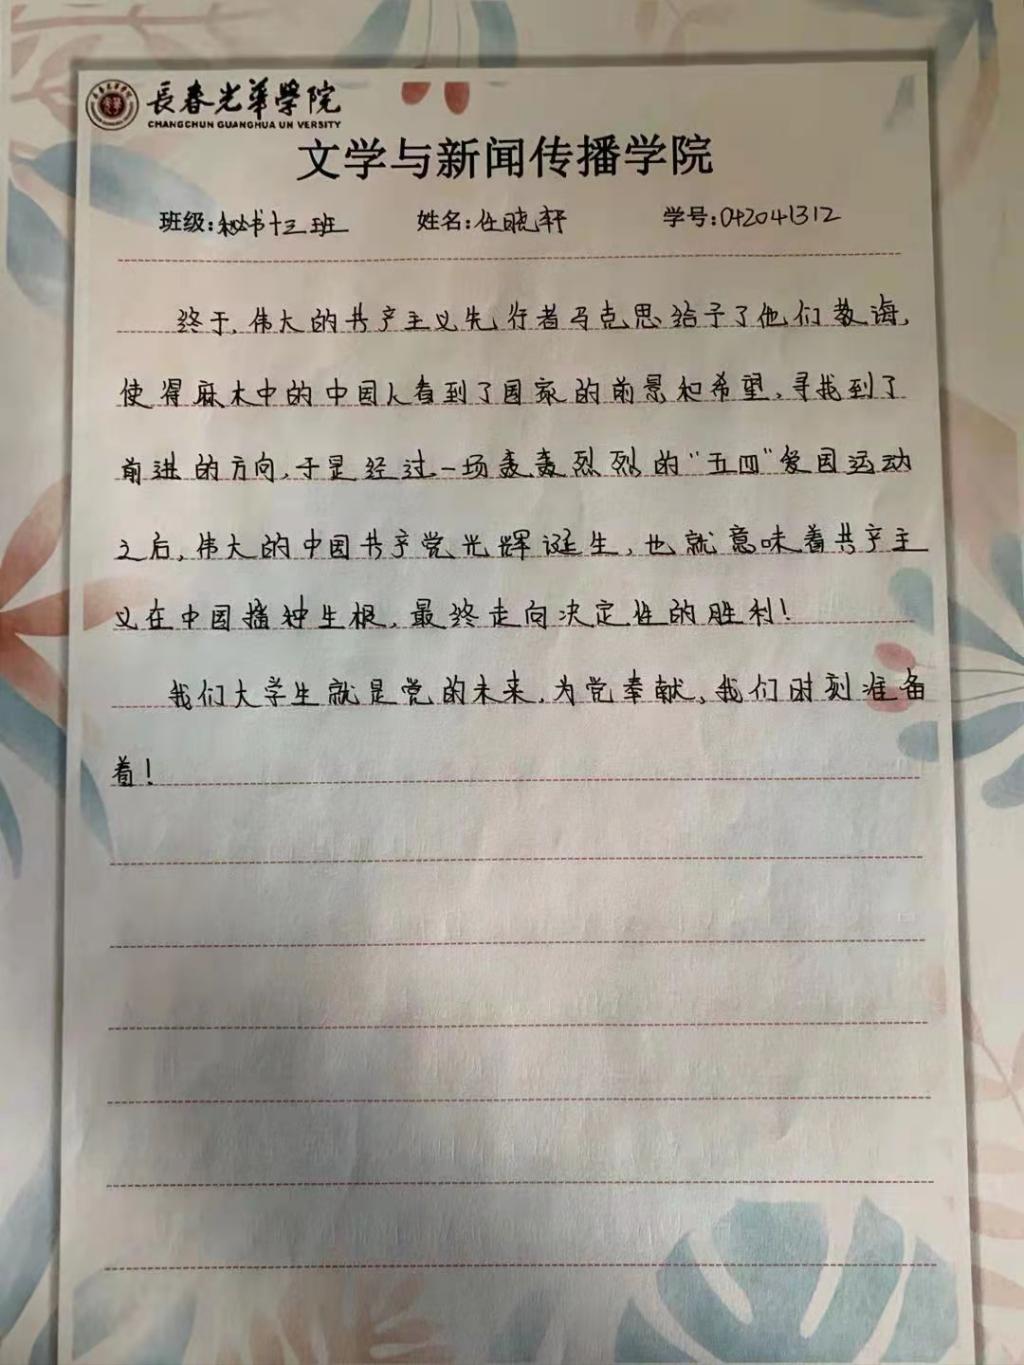 長春光華學院
CHANGCHUN GUANGHUA UN VERSITY
文学与新闻传播学院
班级:秘书十三班 姓名:任晓轩 学号:042041312
终于,伟大的共产主义先行者马克思给予了他们教诲,
使得麻木中的中国人看到了国家的前景和希望,寻找到了
前进的方向,于是经过一场轰轰烈烈的“五四”爱国运动
之后,伟大的中国共产党光辉诞生,也就意味着共产主
义在中国播种生根,最终走向决定性的胜利!
我们大学生就是党的未来,为党奉献,我们时刻准备
着!